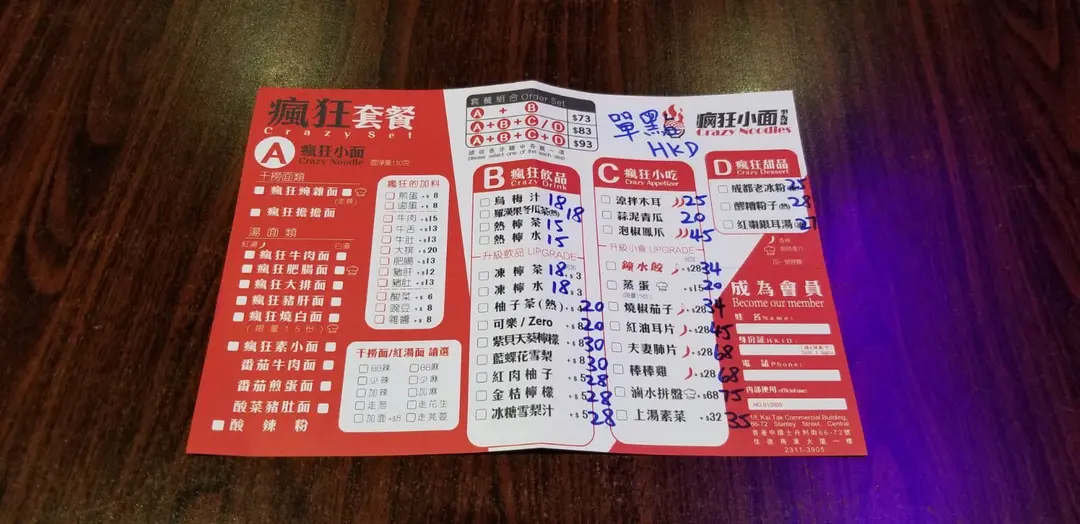 瘋狂套餐
Crazy Set
A 瘋狂小面
Crazy Noodle
干撈面類
瘋狂豌雜面
瘋狂擔擔面
湯面類
紅湯 白湯
瘋狂牛肉面
瘋狂肥腸面
瘋狂大排面
瘋狂豬肝面
瘋狂燒白面
(限量15份)
瘋狂素小面
番茄牛肉面
番茄煎蛋面
酸菜豬肚面
酸辣粉
瘋狂的加料
煎蛋 +$ 8
鹵蛋 +$ 8
牛肉 +$15
牛舌 +$13
牛肚 +$13
大排 +$20
肥腸 +$13
豬肝 +$12
豬肚 +$13
酸菜 +$ 6
豌豆 +$ 8
雜醬 +$ 8
干撈面/紅湯面 請選
BB辣 BB麻
少辣 少麻
加辣 加麻
走蔥 走花生
加面+$8 走芫荽
套餐組合 Order Set
A + B $73
A+B+C/D $83
A+B+C+D $93
please select one of the each step
B 瘋狂飲品
Crazy Drink
烏梅汁 18
羅漢果冬瓜茶(熱) 18
熱檸茶 15
熱檸水 15
升級飲品 UPGRADE
凍檸茶 18 +$ 3
凍檸水 18 +$ 3
柚子茶(熱) 20
可樂/Zero +$ 8 20
紫貝天葵檸檬 +$ 8 30
藍蝶花雪梨 +$ 8 30
紅肉柚子 +$ 5 28
金桔檸檬 +$ 5 28
冰糖雪梨汁 +$ 5 28
單點
HKD
瘋狂小面
Crazy Noodles
C 瘋狂小吃
Crazy Appetizer
涼拌木耳 25
蒜泥青瓜 20
泡椒鳳爪 45
升級小食 UPGRADE
鐘水餃 +$28 34
蒸蛋 +$15 20
燒椒茄子 +$28 34
紅油耳片 +$28 45
夫妻肺片 +$28 68
棒棒雞 +$28 68
滷水拼盤 +$68 75
上湯素菜 +$32 35
D 瘋狂甜品
Crazy Dessert
成都老冰粉 25
醪糟粉子(熱) 28
紅棗銀耳湯(熱) 27
成為會員
Become our member
姓名 Name:
身份証 HKID:
電話 Phone:
內部使用 official use:
1/F, Kai Tak Commercial Building,
66-72 Stanley Street, Central
香港中環士丹利街66-72號
佳德商業大廈一樓
2311-3905